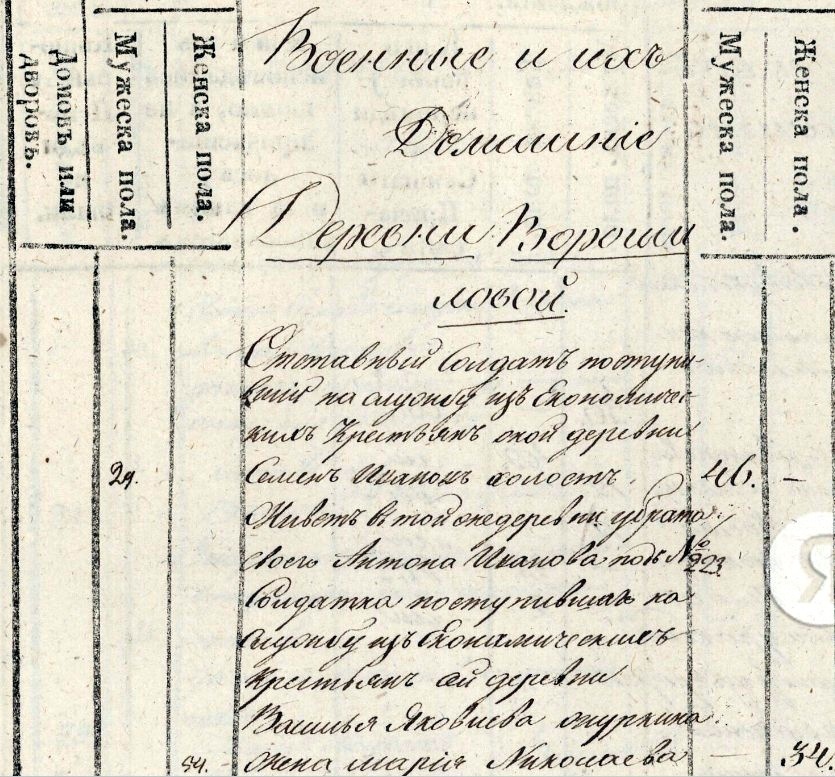 Домовъ или дворовъ.
Мужеска пола.
Женска пола.
Военные и ихъ
Домашніе
Деревни Вороши
ловой.
Мужеска пола.
Женска пола.
Отставный Солдатъ поступи-
вшій на службу изъ Економиче-
скихъ Крестьянъ деревни
29. Семенъ Ивановъ холостъ. 46. –
Живетъ в той же деревни у брата
своего Антона Иванова подъ № 223.
Солдатка поступившаго на
службу изъ Економическихъ
Крестьянъ деревни
Василья Яковлева
34. жена Марія Николаева – 34.
Я